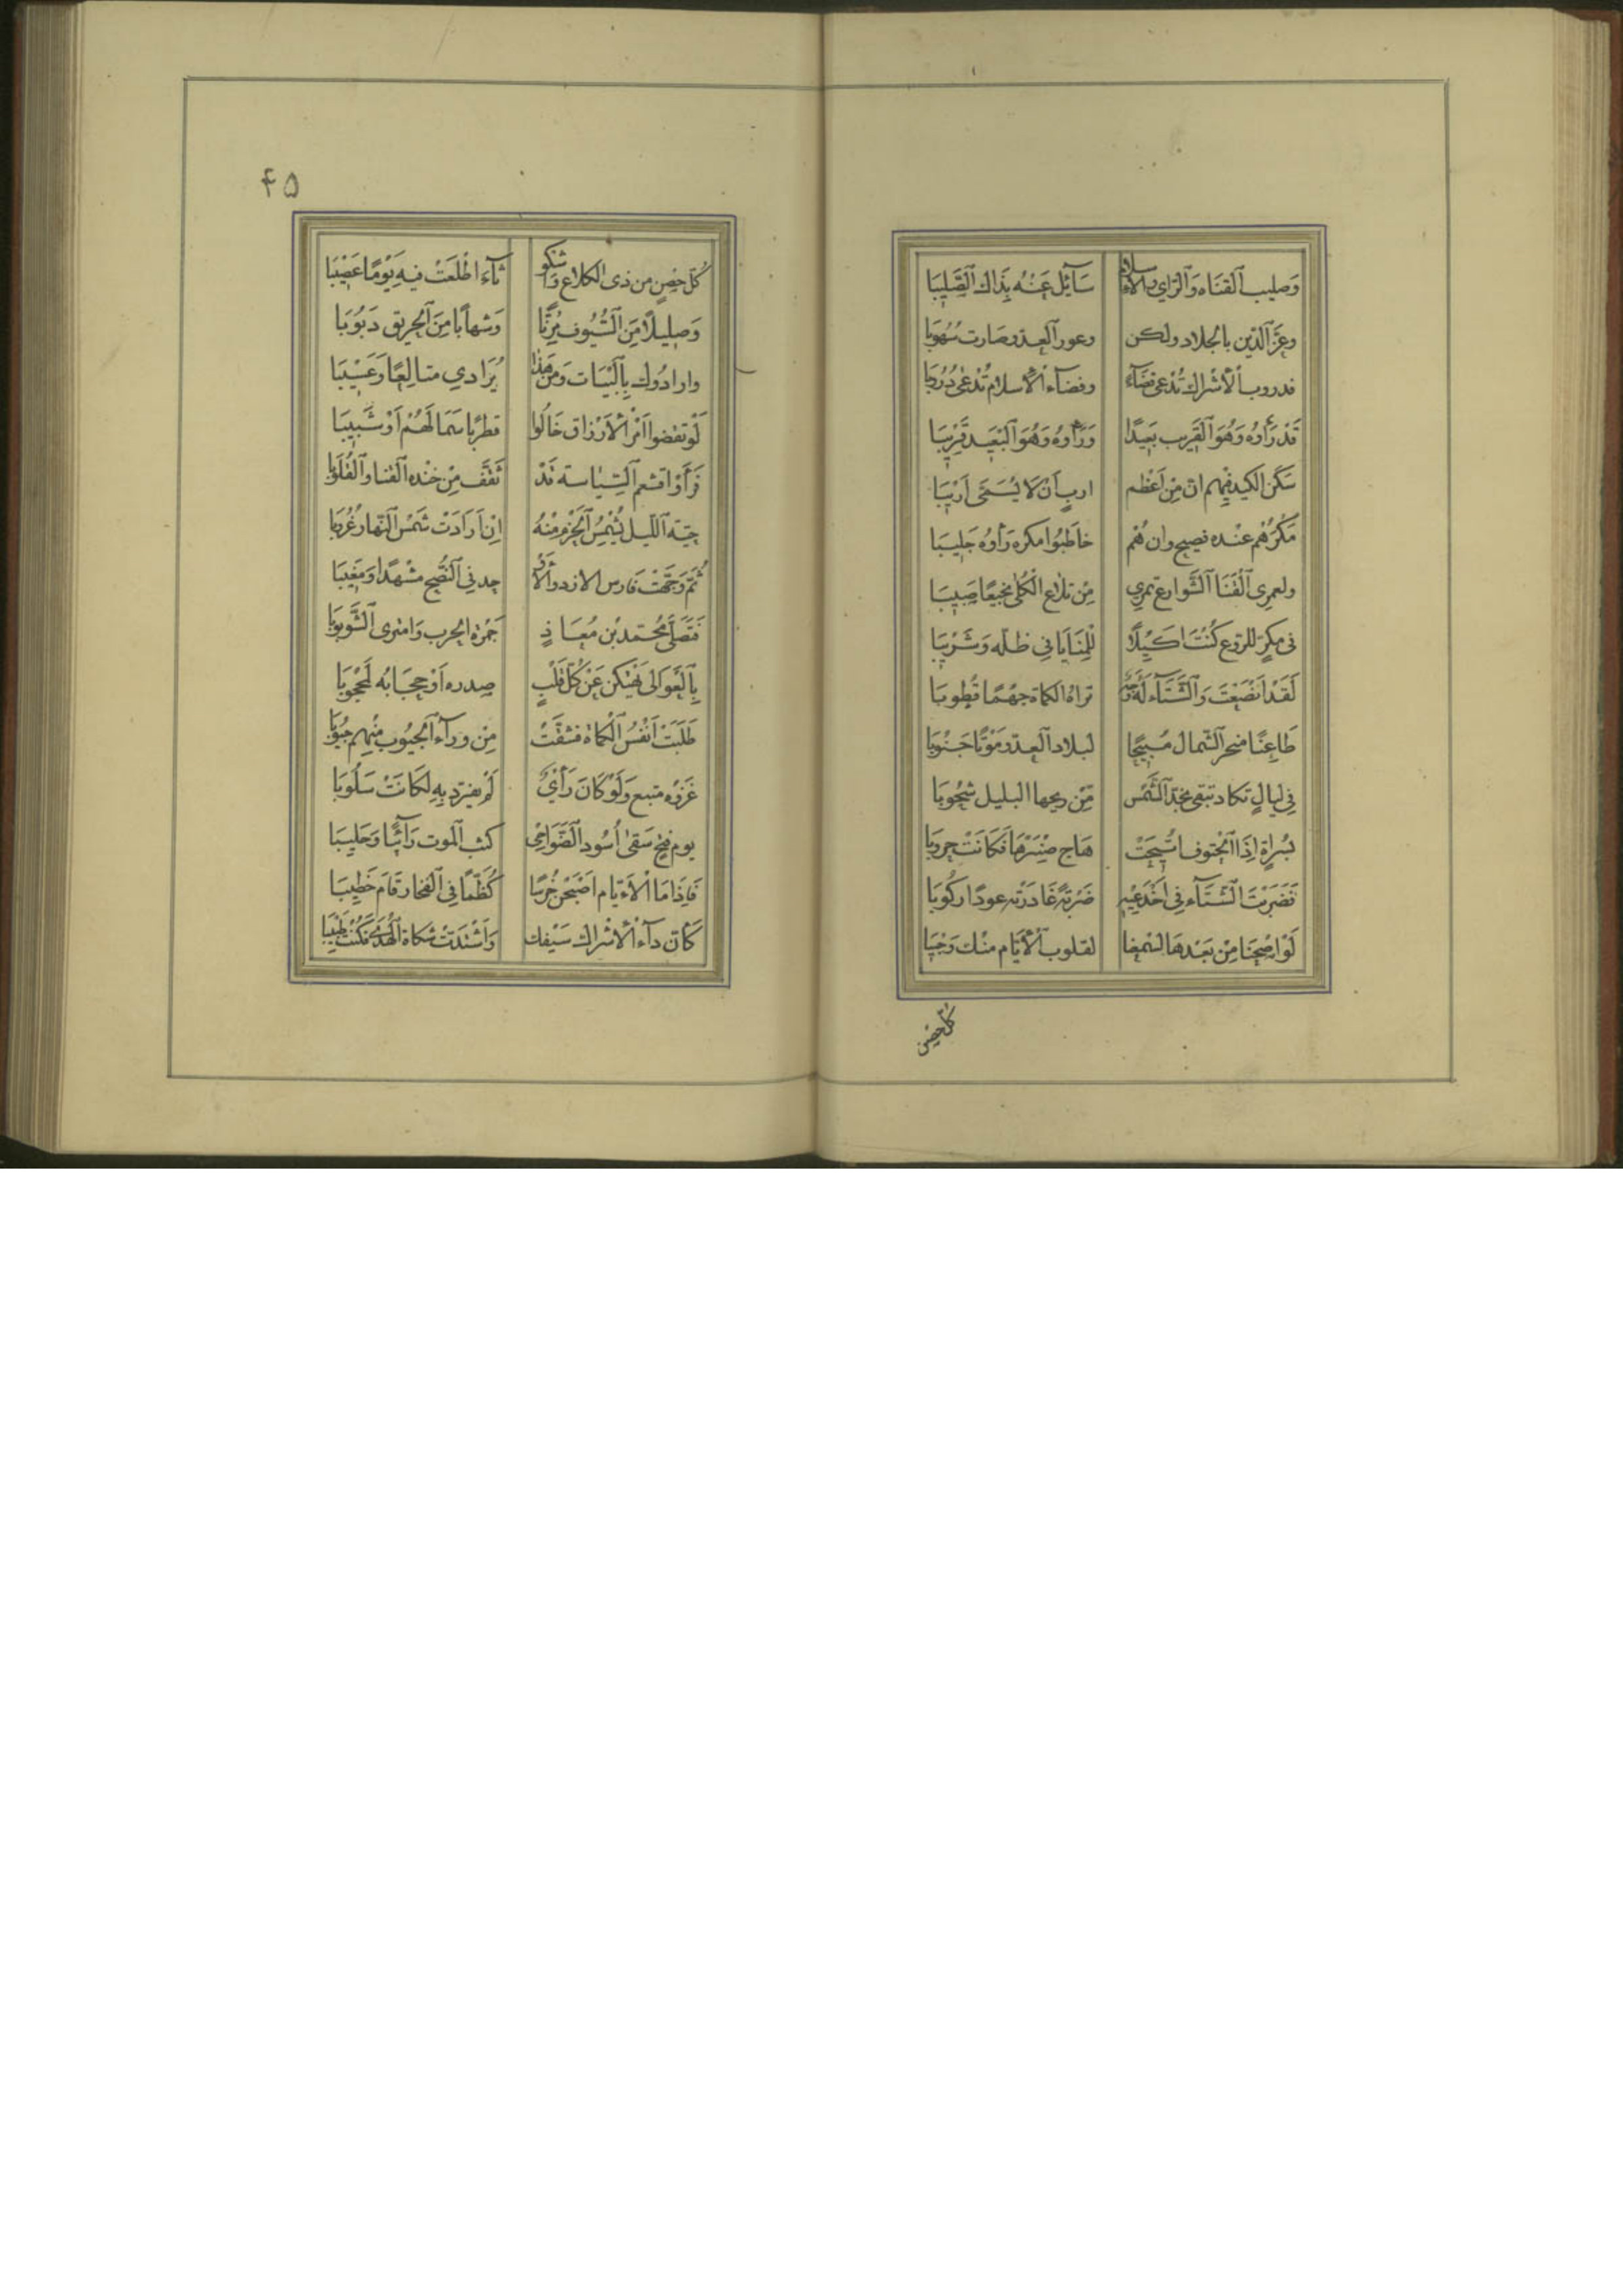 وَصليب القَنَاه وَالرّاى والاسلام سَآئِل عَنْهُ بِذَاكَ الصَّلِيبَا
وعرَّ الدّين بالجلاد ولكن وعور العدو صَارت سُهُوبَا
فدروب الأشراك تُدعى فضَآءً وفضآء الأسلام تُدْعى دُرُوبَا
قَدْ رَأَوهُ وَهُوَ القَرِيب بَعِيدًا وَرَأَوهُ وَهُوَ الْبَعِيد قَرِيبَا
سَكَّنَ الكيد فيهم ان مِن اَعْظَم اربٍ اَنْ لَا يُسَمَّى اَرِيبَا
مَكْرُهُم عنْده فصيح وان هُم خاطَبُوا مكره رَأَوهُ جَلِيبَا
ولعمرى القَنَا الشَّوارع تمرى مِن تلاع الْكُلى نجيعًا صَبِيبَا
فى مكرٍّ للروع كُنْتَ اَكِيلًا لِلْمَنَايَا فِي ظلّه وَشَرِيبَا
لَقَدْ انصَعْتَ وَالشّتَآء لَهُ وَجْه تراهُ الكماة جهْمًا قُطُوبَا
طَاعِنًا منحر الشّمال مُتيحًا لبلاد العدو مَوْتًا جَنُوبَا
فِي ليالٍ تكاد تبقى بخدّ الشَّمْس مِّن ريحها البليل شحُوبَا
سَبَراتٍ اِذَا الْحتوف اُبيحَتْ هَاج صِنّبرهَا فَكَانَتْ حروبا
فَضَربْتَ الشّتَآء فِى اَخْدَعَيْهِ ضَرْبَةً غَادَرَتْه عودًا ركُوبَا
لَوْ اصْخنَا مِن بَعْدهَا لسَمعْنا لقلوب الأَيّام منْك وَجِيبَا
كلّ حصْنٍ
۴۵
كُلّ حِصْنٍ من ذى الكلاع وَاكشو ثآءَ اطْلَعْتَ فيه يَوْمًا عَصِيْبَا
وَصليلًا مِنَ السُّيُوف مُرِنًّا وَشهابًا مِنَ الحريق دَبُوبَا
وارادُوكَ بِالْبَيَات وَمَنْ هَذَا يُرَادي متالِعًا وَعَسِيْبَا
فَرَأَوْا قشعم السّيَاسَة قَدْ ثَقَّف مِنْ جُنْده القنا وَالْقُلُوبَا
حيّة اللّيل يُشْمِسُ الْحَزْم مِنْهُ اِنْ اَرَادَتْ شَمْسُ النّهار غُرُوبَا
لَوْ تقصّوا اَمْر الأَزارق خَالُوا قطريًا سَمَا لَهُمْ اَوْ شَبِيبَا
ثُمَّ وَجَّهْتَ فَارس الازد وَالأَوْ حد فِى النُّصْح مَشْهَدًا وَمَغِيبَا
فَتَصَلَّى مُحَمّد بْن مُعَاذٍ جَمْرة الحرب وَامترى الشُّؤبُوبَا
بِالْعَوَالى يَهْتِكْنَ عَنْ كُلّ قَلْبٍ صدره اَوْ حِجَابَهُ الْمَحْجُوبَا
طَلَبَتْ اَنْفُسَ الْكُمَاة فشقّتْ مِنْ ورآءِ الجيُوب مِنْهم جُيُوبَا
غَزْوَة متبع وَلَوْ كَانَ رَأْيٌ لَمْ تفرّد به لكَانَتْ سَلُوبَا
يوم فتحٍ سَقى اُسُود الضَّوَاحى كثب الموت رَآئبًا وَحَلِيبَا
فَاِذَا مَا الْأَيَّام اَصْبَحْن خُرْسًا كُظَّمًا فِى الفخار قَامَ خَطِيبَا
كَأنَ دَآءُ الأشراك سَيْفك وَاشْتَدَّتْ شكاة الْهُدى فكُنْتَ طَبِيبَا